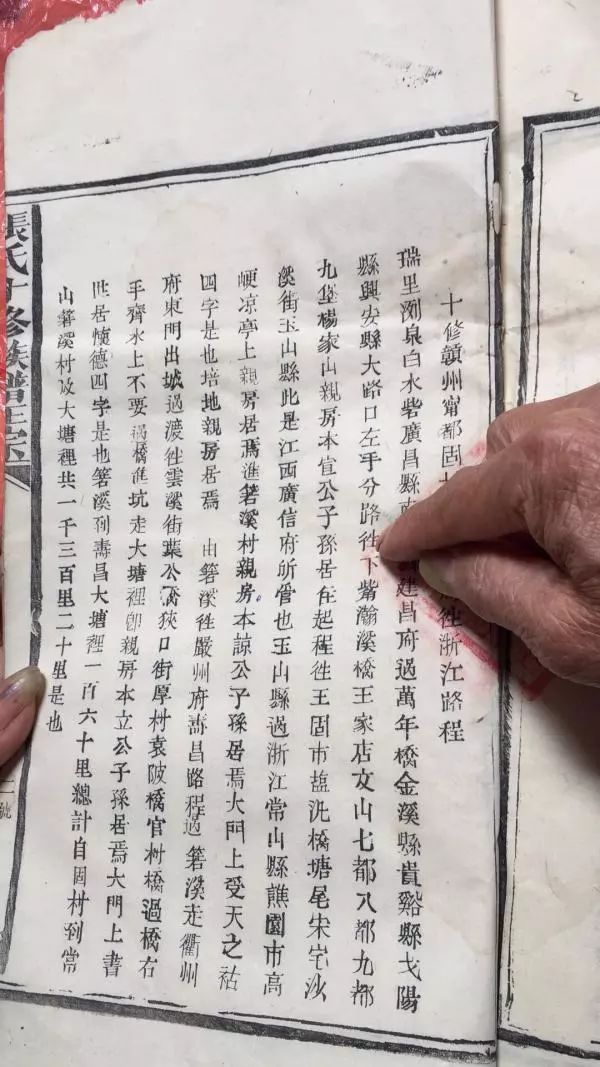 十修贛州甯都固
徃浙江路程
瑞里洌泉白水砦廣昌縣
建昌府過萬年橋金溪縣貴谿縣戈陽
縣興安縣大路口左手分路徃下紫瀚溪橋王家店文山七都八都九都
九堡楊家山親房本宜公子孫居在起程徃王固市塩洗橋塘尾宋宅沙
溪街玉山縣此是江西廣信府所管也玉山縣過浙江常山縣譙園市高
峺凉亭上親房居焉進箬溪村親房本諒公子孫居焉大門上受天之祜
四字是也培地親房居焉 由箬溪徃嚴州府壽昌路程過箬溪走衢州
府東門出城過渡徃雲溪街葉公橋狹口街厚村袁陂橋官村橋過橋右
手齊水上不要過橋進坑走大塘裡卽親房本立公子孫居焉大門上書
世居懷德四字是也箬溪到壽昌大塘裡一百六十里總計自固村到常
山箬溪村及大塘裡共一千三百里二十里是也
張氏十修族譜
號